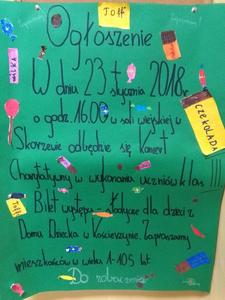 TOFF
Ogłoszenie
W dniu 23 stycznia 2018r.
o godz. 16.00 w sali wiejskiej w
Skorzewie odbędzie się Koncert
Charytatywny w wykonaniu uczniów klas III.
Bilet wstępu - słodycze dla dzieci z
Domu Dziecka w Kościerzynie. Zapraszamy
mieszkańców w wieku 1-105 lat
Do zobaczenia
CZEKOLADA